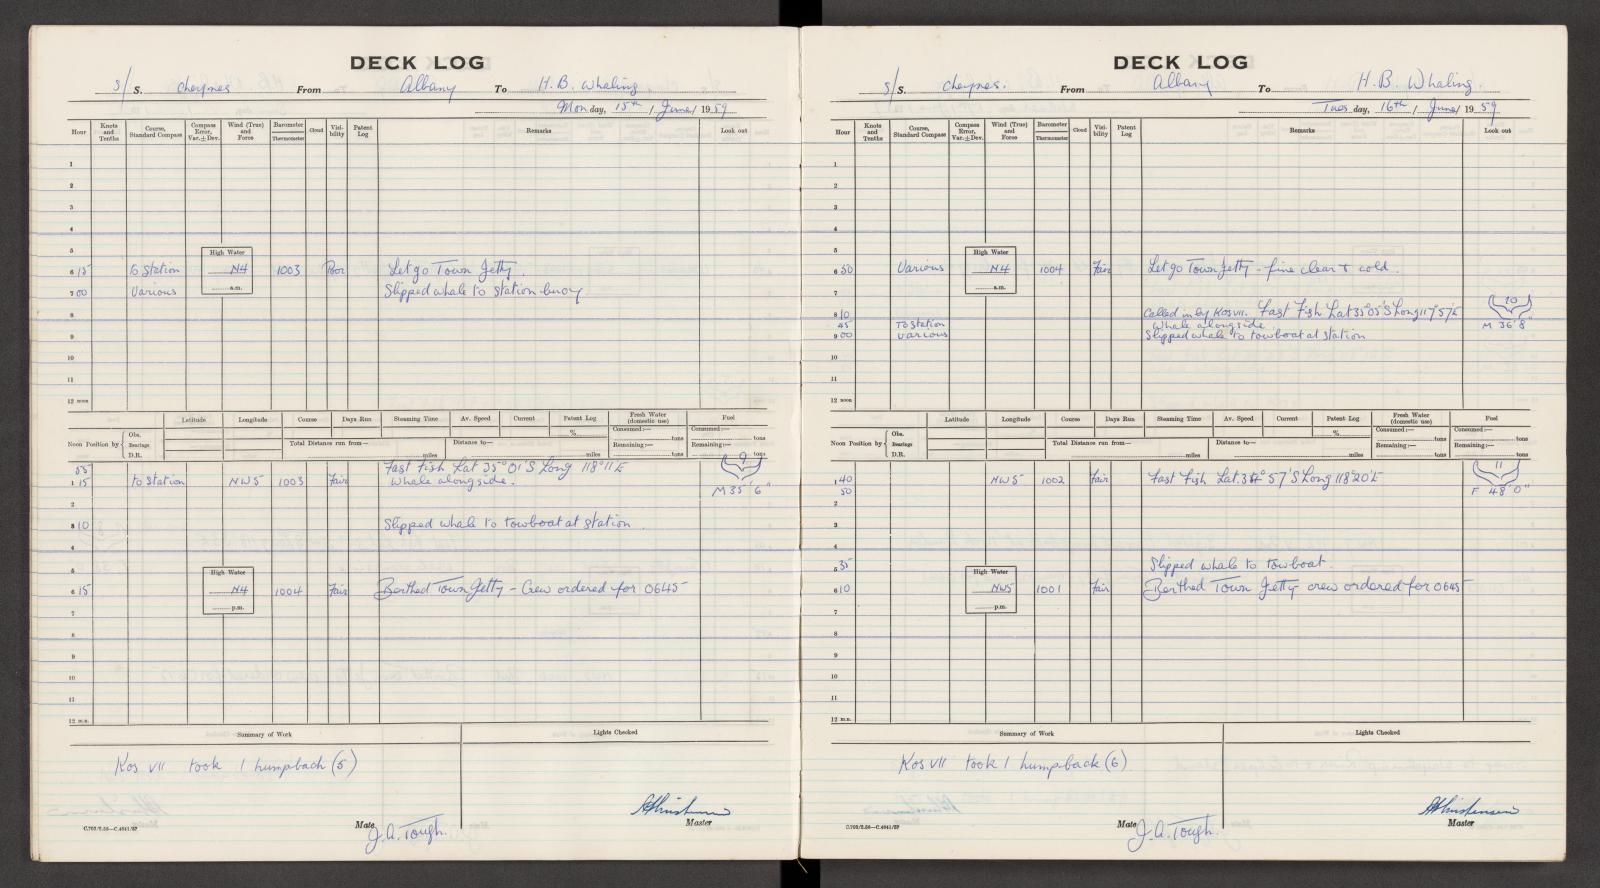 DECK LOG
s/S. cheynes From Albany To H. B. Whaling
Mon day, 15th / June / 1959
Hour Knots and Tenths Course, Standard Compass Compass Error, Var. ± Dev. Wind (True) and Force Barometer Thermometer Cloud Visibility Patent Log Remarks Look out
1
2
3
4
5 High Water
6 15 To Station N4 1003 Poor Let go Town Jetty.
a.m.
7 00 Various Slipped whale to station buoy
8
9
10
11
12 noon
Latitude Longitude Course Days Run Steaming Time Av. Speed Current Patent Log Fresh Water (domestic use) Fuel
Noon Position by Obs. Bearings D.R. % Consumed:— tons Consumed:— tons
Total Distance run from— miles Distance to— miles Remaining:— tons Remaining:— tons
55 Fast Fish Lat 35°01'S Long 118°11'E 9
1 15 to Station NW5 1003 Fair Whale alongside. M 35' 6"
2
3 10 Slipped whale to towboat at station.
4
5 High Water
6 15 N4 1004 Fair Berthed Town Jetty - Crew ordered for 0645
p.m.
7
8
9
10
11
12 m.n.
Summary of Work Lights Checked
Kos VII took 1 humpback (5)
C.702/2.56—C.4641/57 Mate J. A. Tough. Master
DECK LOG
s/S. cheynes. From Albany To H. B. Whaling.
Tues day, 16th / June / 1959
Hour Knots and Tenths Course, Standard Compass Compass Error, Var. ± Dev. Wind (True) and Force Barometer Thermometer Cloud Visibility Patent Log Remarks Look out
1
2
3
4
5 High Water
6 50 Various N4 1004 Fair Let go Town Jetty - fine clear + cold.
a.m.
7
8 10 Called in by Kos VII. Fast Fish Lat 35°05'S Long 117°57'E 10
45 To Station Whale alongside M 36' 8"
9 00 various Slipped whale to towboat at station
10
11
12 noon
Latitude Longitude Course Days Run Steaming Time Av. Speed Current Patent Log Fresh Water (domestic use) Fuel
Noon Position by Obs. Bearings D.R. % Consumed:— tons Consumed:— tons
Total Distance run from— miles Distance to— miles Remaining:— tons Remaining:— tons
1 40 NW5 1002 Fair Fast Fish Lat. 34° 57'S Long 118°20'E 11
50 F 48' 0"
2
3
4
5 35 Slipped whale to towboat.
High Water
6 10 NW5 1001 Fair Berthed Town Jetty crew ordered for 0645
p.m.
7
8
9
10
11
12 m.n.
Summary of Work Lights Checked
Kos VII took 1 humpback (6)
C.702/2.56—C.4641/57 Mate J. A. Tough. Master